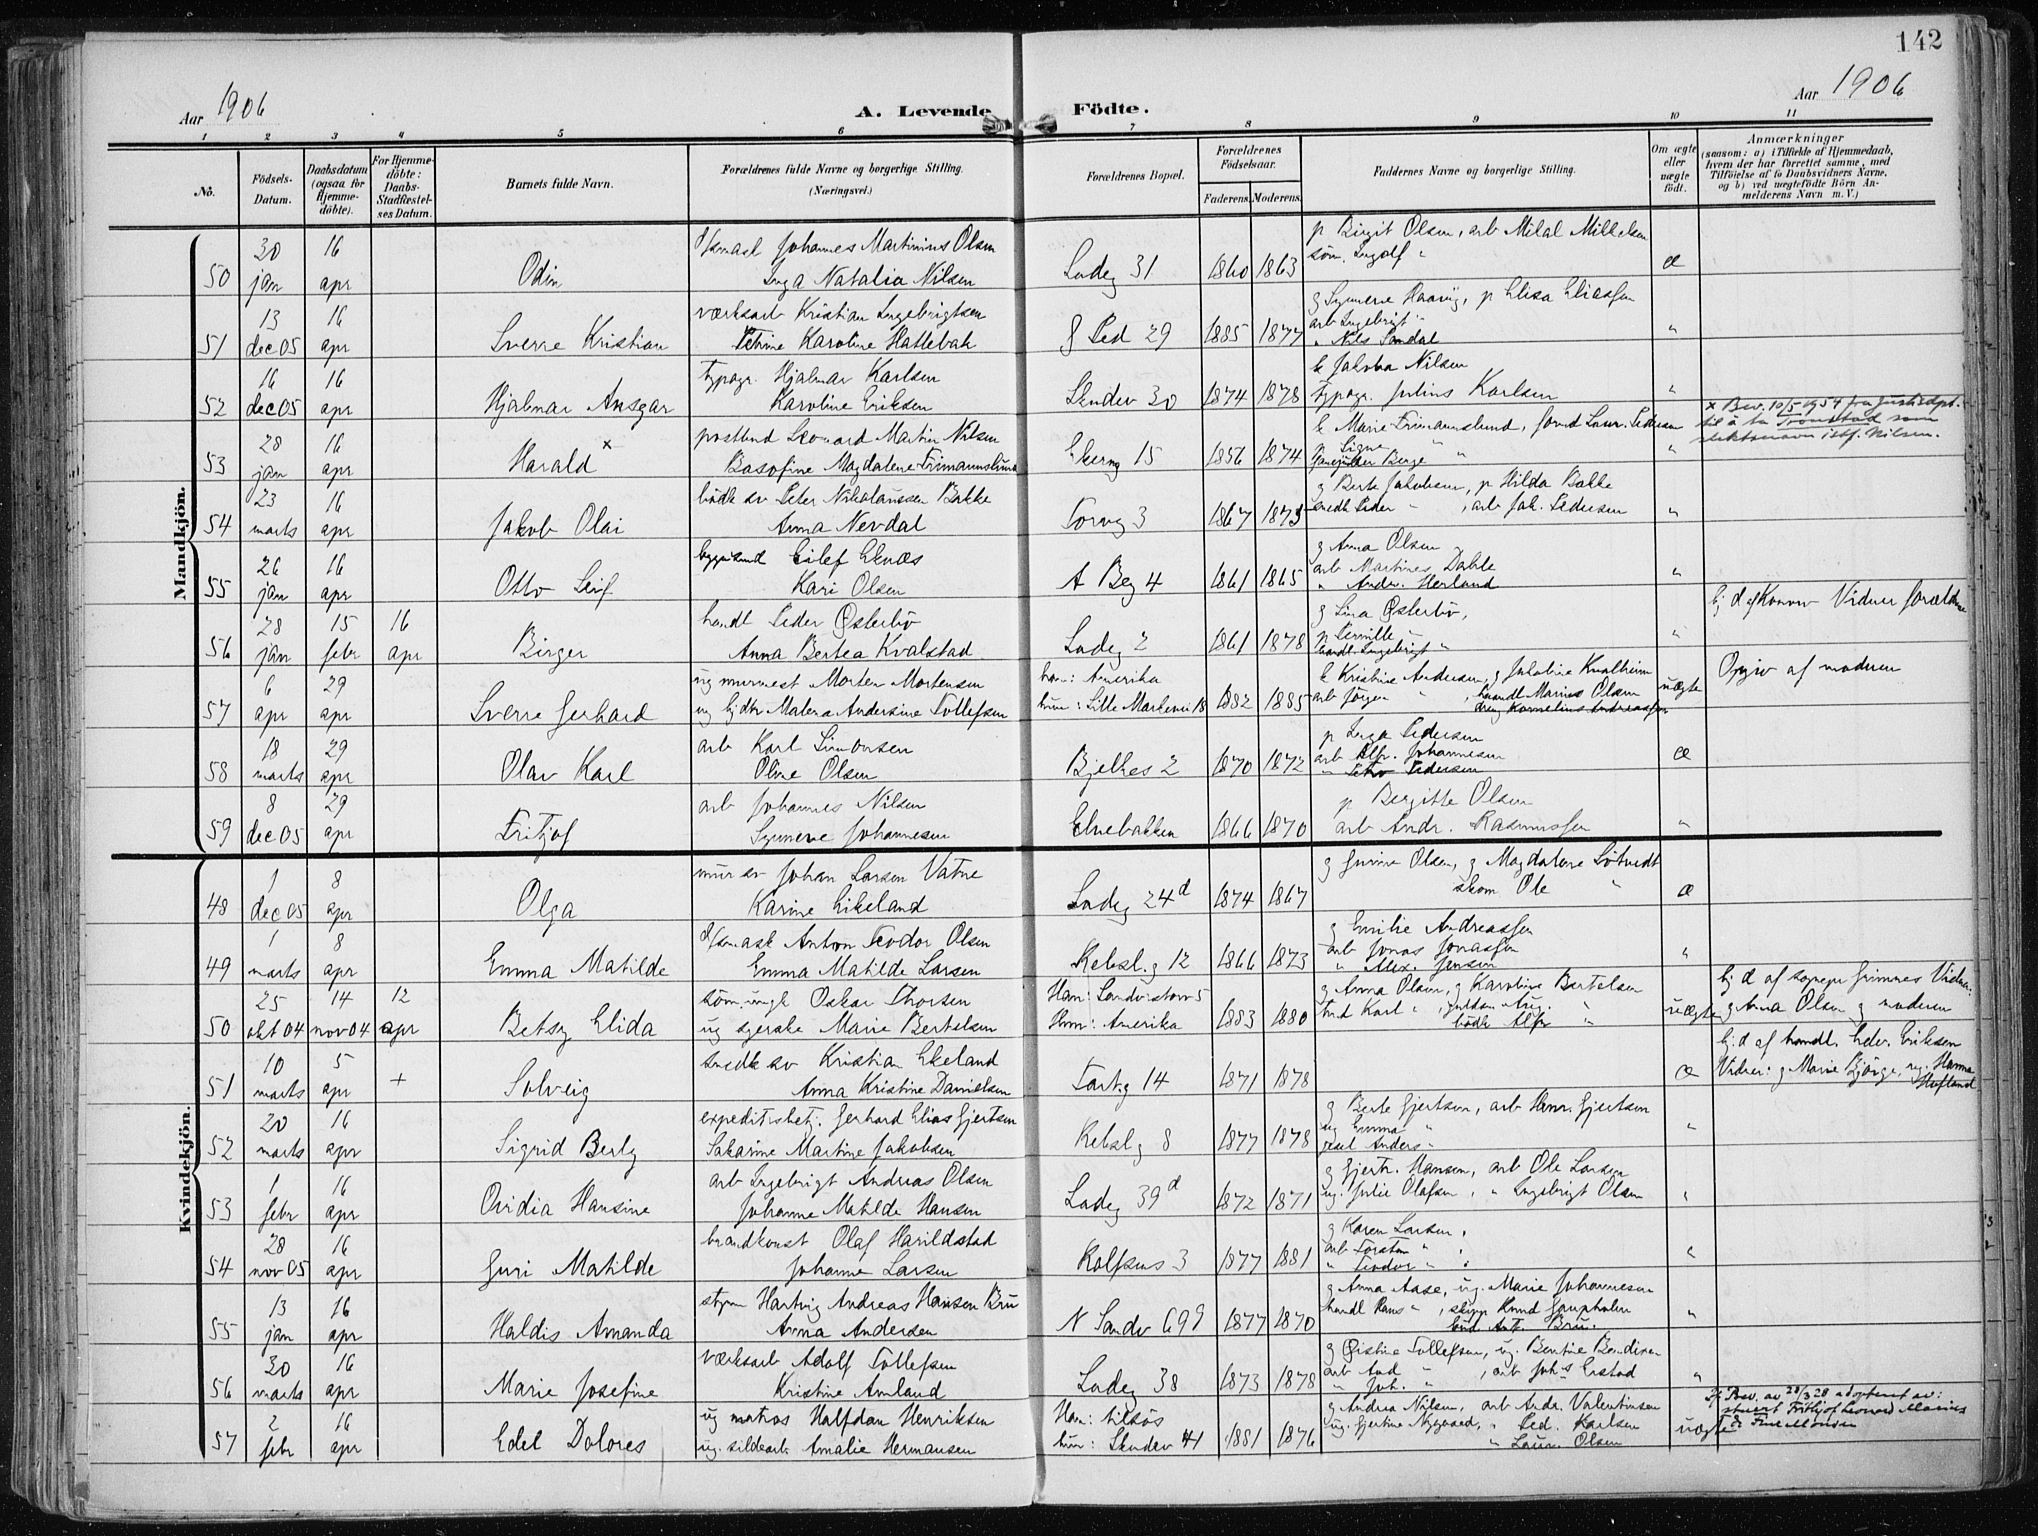 142
Aar 1906
A. Levende Födte.
Aar 1906
1 2 3 4 5 6 7 8 9 10 11
No.
Födsels-Datum.
Daabsdatum (ogsaa for Hjemme-döbte).
For Hjemme-döbte: Daabs-Stadfæstel-ses Datum.
Barnets fulde Navn.
Forældrenes fulde Navne og borgerlige Stilling. (Næringsvei.)
Forældrenes Bopæl.
Forældrenes Födselsaar.
Faderens. Moderens.
Faddernes Navne og borgerlige Stilling.
Om ægte eller uægte födt.
Anmærkninger
(saasom: a) i Tilfælde af Hjemmedaab, hvem der har forrettet samme, med Tilföielse af to Daabsvidners Navne, og b) ved uægtefödte Börn An-melderens Navn m. V.)
Mandkjön.
50 30 jan 16 apr Odin Johannes Martinius Olsen
Inga Natalia Nilsen Ladeg 31 1860 1863 p Birgit Olsen, arb
søm. Ingolf " æ
51 13 dec 05 16 apr Sverre Kristian værksarb Kristian Ingebrigtsen
Petrine Karoline Hattebak 29 1885 1877 p Elisa Eliassen
arb Ingebrigt "
" Nils Sandal "
52 16 dec 05 16 apr Hjalmar Ansgar typogr. Hjalmar Karlsen
Karoline Eriksen Skudev 30 1874 1878 e Jakoba Nilsen
typogr. Julius Karlsen "
53 28 jan 16 apr Harald x postbud Leonard Martin Nilsen
Magdalene 15 1856 1874 e Marie
p Signe "
Berge " "
x Bev. 10/5 1954 fra Justisdpt. til å ta Tronstad som slektsnavn istf. Nilsen.
54 23 marts 16 apr Jakob Olai bödk sv Peter Nikolaussen Bakke
Anna Nevdal Torvg 3 1867 1873 g Berte Jakobsen, p Hilda Bakke
smedk Peder " , arb Jak. Pedersen "
55 26 jan 16 apr Otto Leif Eilef Eknæs
Kari Olsen A Beg 4 1861 1865 g Anna Olsen
arb Martines Dahle
" Andr. Herland "
56 28 jan 15 febr 16 apr Birger handl Peder Østerbö
Anna Bertea Kvalstad Ladeg 2 1861 1878 g Lina Østerbö,
p Pernille "
handl Ingebrigt " "
hj d af Vidner forældrene
57 6 apr 29 apr Sverre Gerhard ug murmest Morten Mortensen
ug Malena Andersine Tollefsen ham: Amerika
hun: Lille Markevei 18 1882 1885 e Kristine Andersen, g Jakobine Kvalheim
arb Jörgen " , handl Marius Olsen
dreng Kornelius Andreassen uægte Opgiv af moderen
58 18 marts 29 apr Olav Karl arb Karl Simonsen
Oline Olsen Bjelkes 2 1870 1872 p Inga Pedersen
arb Alfr. Johannesen
" Pedersen æ
59 8 dec 05 29 apr Fritjof arb Johannes Nilsen
Synneve Johannesen Elvebakken 1866 1870 p Bergitte Olsen
arb Andr. Rasmussen "
Kvindekjön.
48 1 dec 05 8 apr Olga mur sv Johan Larsen Vatne
Karine Eikeland Ladeg 24d 1874 1867 g Gurine Olsen, g Magdalene
skom Ole " æ
49 1 marts 8 apr Emma Matilde Anton Teodor Olsen
Emma Matilde Larsen Rebsl.g 12 1866 1873 g Emilie Andreassen
arb Jonas Jonassen
" Alex. Jensen "
50 25 okt 04 14 nov 04 12 apr Betsy Elida søm. ungk Oskar Thorsen
ug syerske Marie Bertelsen Ham: Sandvikstorv 5
Hun: Amerika 1883 1880 g Anna Olsen, g Karoline Bertelsen
Karl " , Aug. "
bödk Alfr " uægte hj. d af sognepr Grimnes Vidner:
g Anna Olsen g moderen
51 10 marts 5 apr + Solveig smedk sv Kristian Ekeland
Anna Kristine Danielsen 14 1871 1878 æ hj: d af handl. Edv. Eriksen
Vidner: g Marie Björge, ug. Hanna Hufland
52 20 marts 16 apr Sigrid Berly expeditsbetj. Gerhard Elias Gjertsen
Sakarine Martine Jakobsen Rebslg 8 1877 1878 g Berte Gjertsen, arb Henr. Gjertsen
ug Emma "
Anders " "
53 1 febr 16 apr Ovidia Hansine arb Ingebrigt Andreas Olsen
Johanne Matilde Hansen Ladeg 39d 1872 1871 g Gjertr. Hansen, arb Ole Larsen
ug. Julie Olafsen, " Ingebrigt Olsen "
54 28 nov 05 16 apr Guri Matilde brandkonst Olaf Harildstad
Johanne Larsen Rolfsens 3 1877 1881 g Karen Larsen,
arb Torsten "
" Teodor " "
55 13 jan 16 apr Haldis Amanda Hartvig Andreas Hansen Bru
Anna Andersen N Sandv 69 1877 1870 g Anna Aase, ug. Marie Johannesen
handl Rans " , skipp Knud
Ant. Bru. "
56 30 marts 16 apr Marie Josefine værksarb Adolf Tollefsen
Kristine Amland Ladeg 38 1873 1878 g Østine Tollefsen, ug. Bentine Bendixen
arb " , arb Johs Erstad
" Joh. " "
57 2 febr 16 apr Edel Dolores ug matros Halfdan Henriksen
ug. sildearb. Amalie Hermansen Ham: tilsös
hun: Skudev 41 1881 1876 g Andrea Nilsen, arb Andr. Valentinsen
ug. Gjertine Nygaard, " Ped. Karlsen
" Laur. Olsen uægte
Bev. av 28/3 28 adopteret av:
stuert Fritjof Leonard Monsen
&